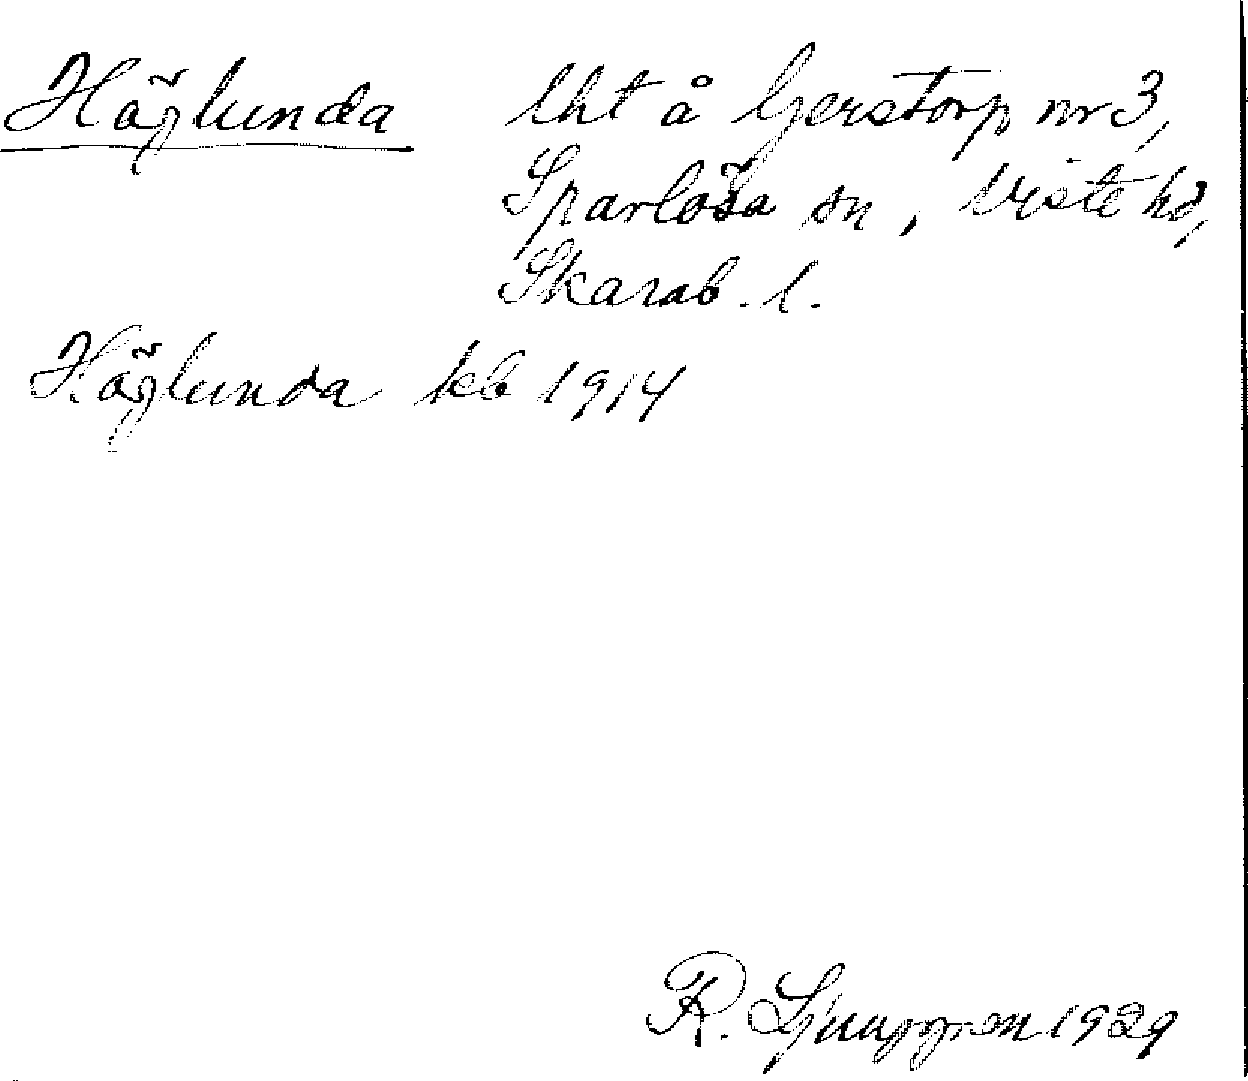 Höglunda lht å Gerstorp nr 3,
Sparlösa sn, Viste hd,
Skarab. l.
Höglunda kb 1914
R. Ljunggren 1929